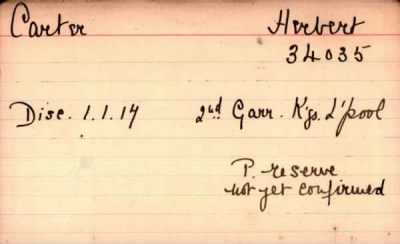 Carter Herbert
34035
Disc. 1.1.17 2nd Garr. K'gs. L'pool
P. reserve
not yet confirmed